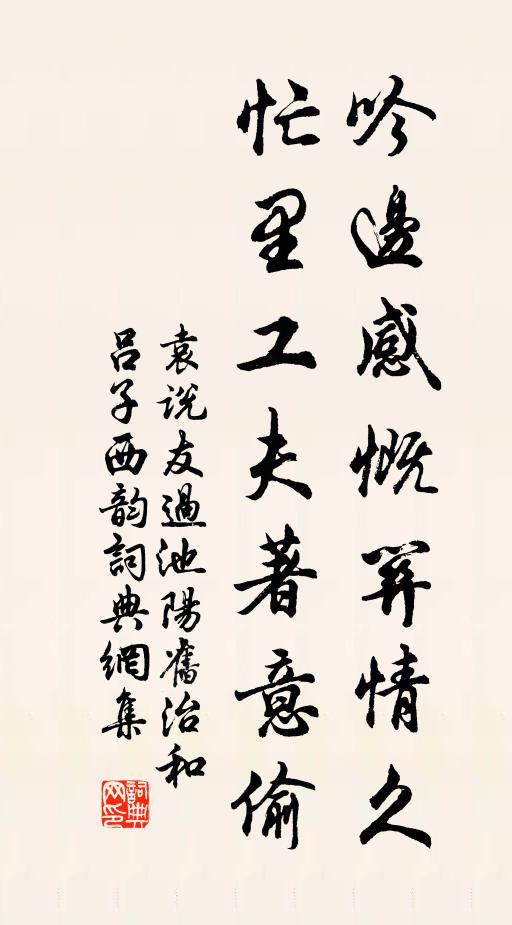 吟邊感慨關情久
忙里工夫著意偷
袁説友過池陽舊治和
吕子西韵詞典網集
詞典
网印